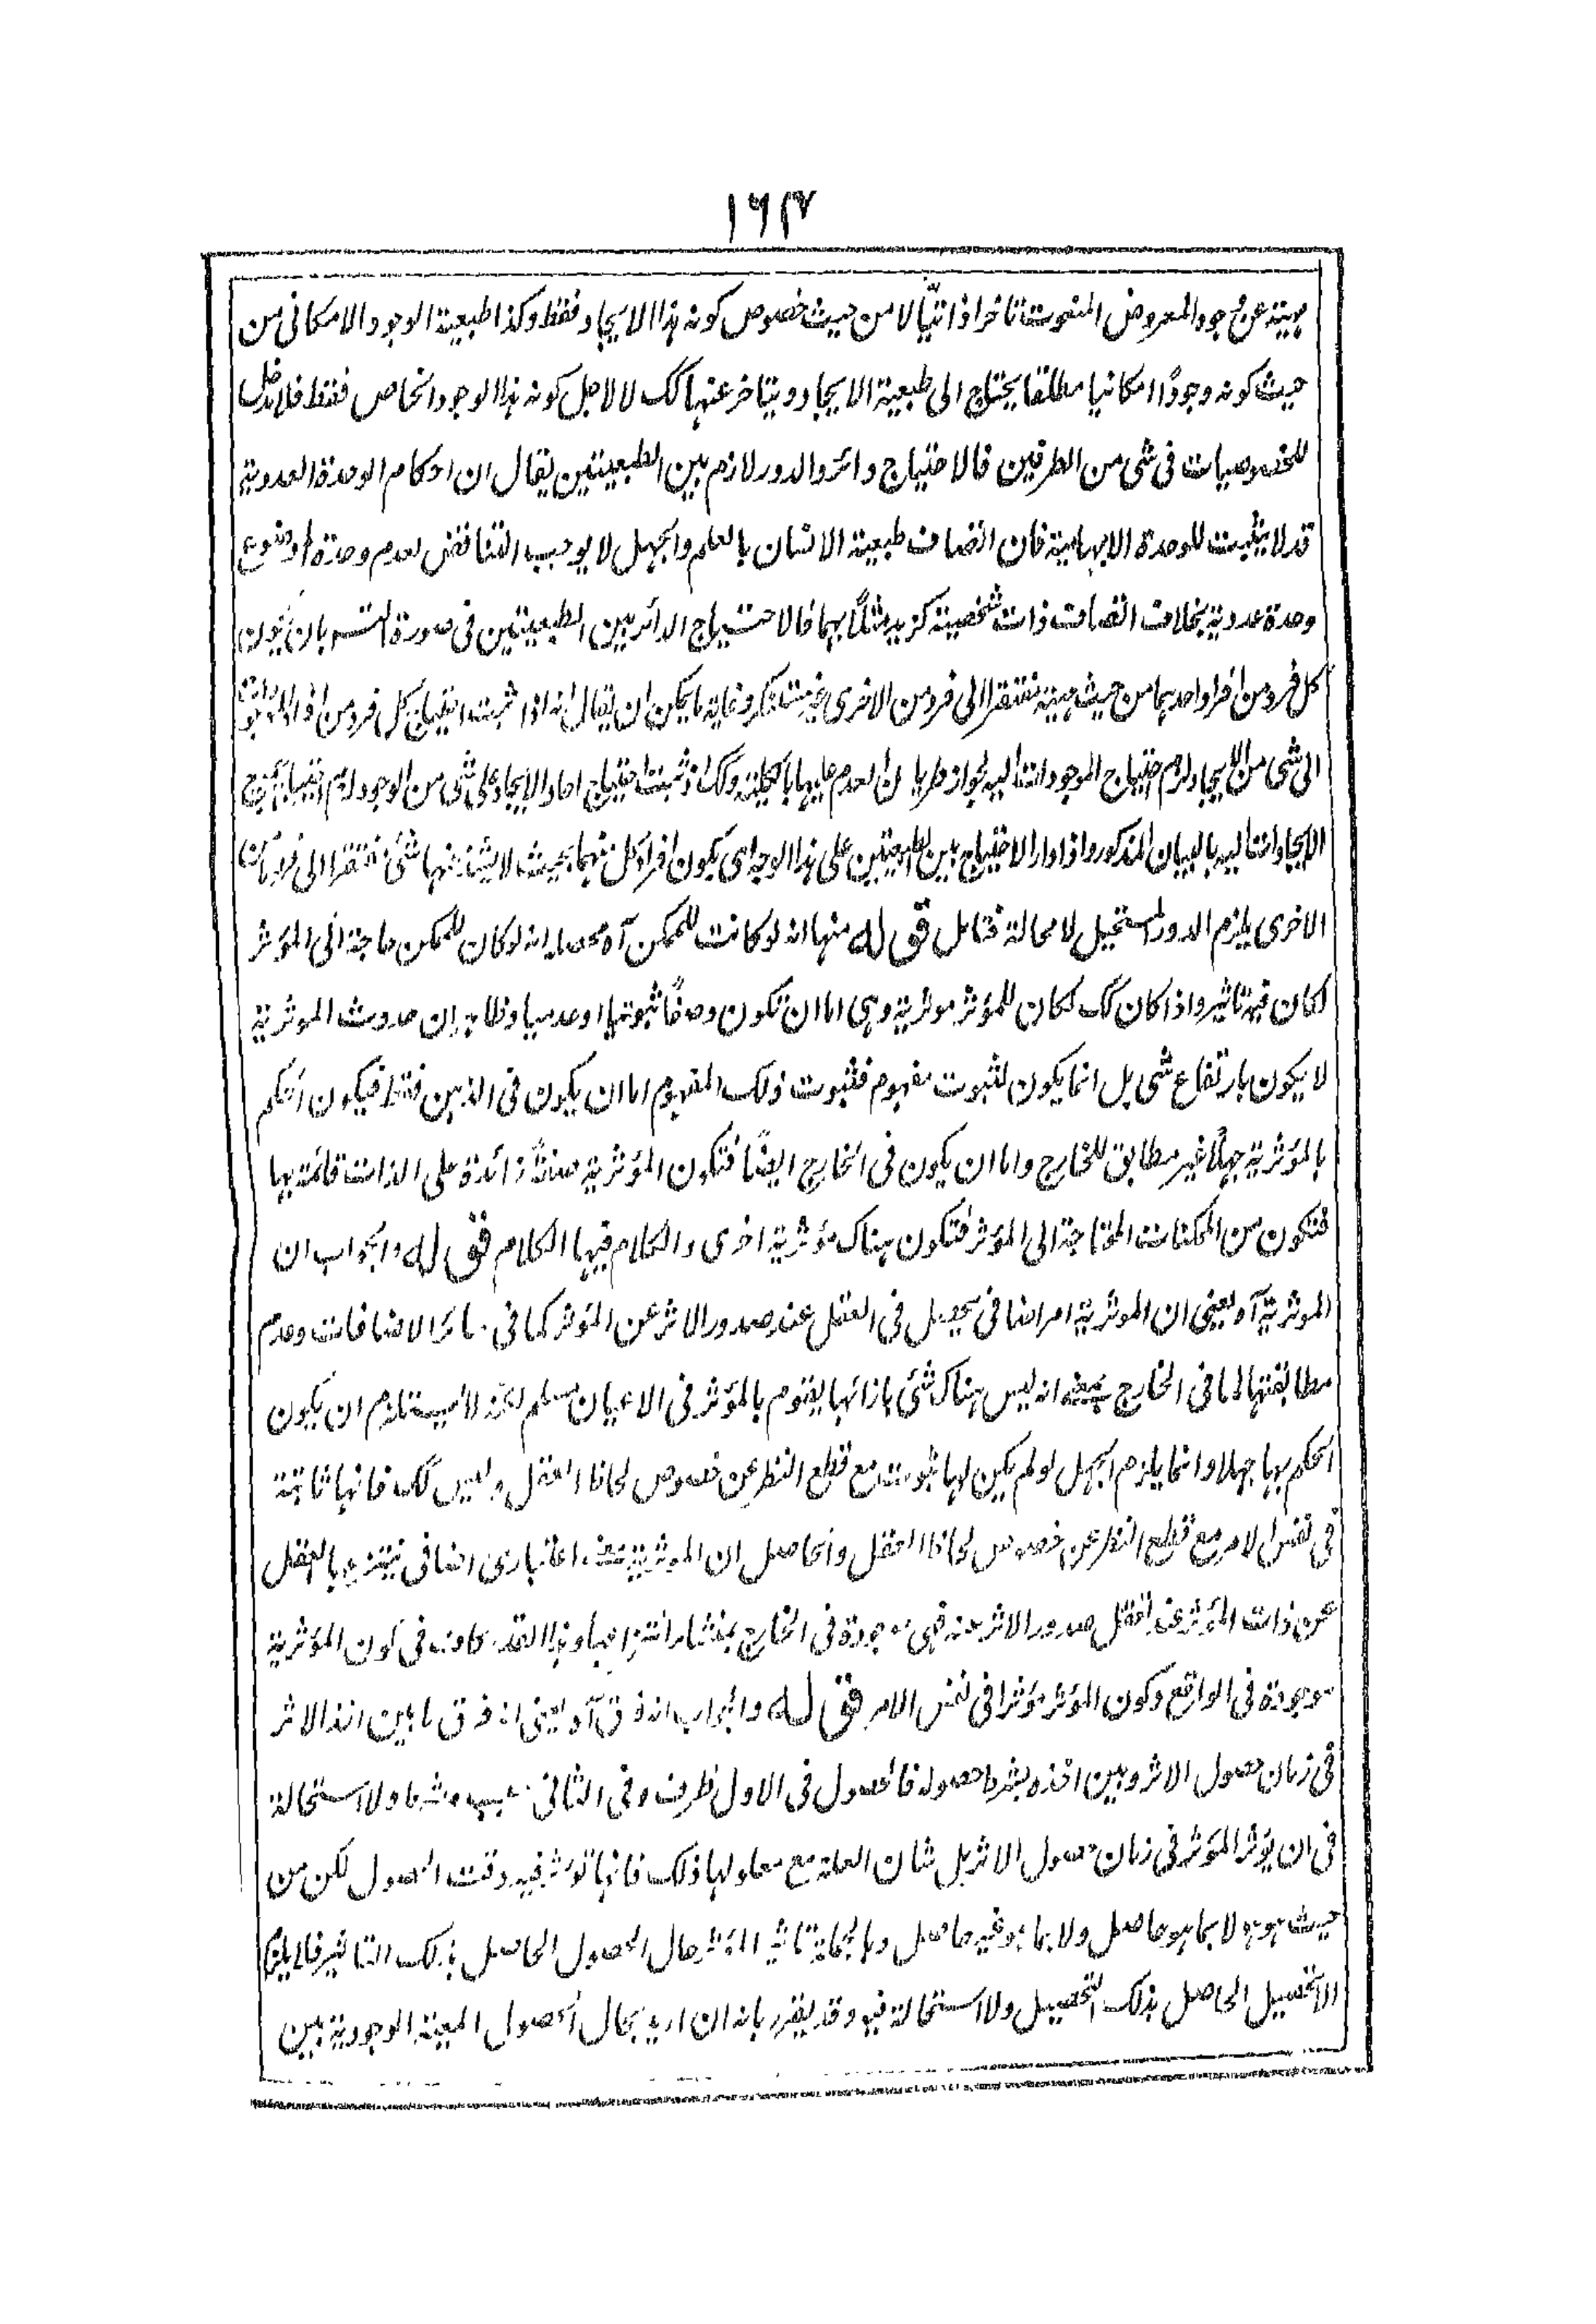 ١٦٢
مهيته عن وجود المعروض المنعوت تاخرا ذاتيًّا لا من حيث خصوص كونه هذا الايجاد فقط وكذا طبيعة الوجود الامكاني من
حيث كونه وجودًا امكانيا مطلقا يحتاج الى طبيعة الايجاد ويتاخر عنها كك لا لاجل كونه هذا الوجود الخاص فقط فلا مدخل
للخصوصيات في شئ من الطرفين فالاحتياج دائر والدور لازم بين الطبيعيتين يقال ان احكام الوحدة العددية
قد لا يثبت للوحدة الابهامية فان اتصاف طبيعة الانسان بالعلم والجهل لا يوجب التناقض لعدم وحدة الموضوع
وحدة عددية بخلاف اتصاف ذات شخصية كزيد مثلًا بهما فالاحتياج الدائر بين الطبيعيتين في صورة التسـ بان يكون
كل فرد من افراد احدهما من حيث مهيته مفتقرا الى فرد من الاخرى غير مستنكر وغاية ما يمكن ان يقال انه اذا ثبت احتياج كل فرد من افراد الوجود
الى شئ من الايجاد لزم احتياج الموجود اليه لجواز طريان العدم عليها بالكلية وكك اذ ثبت احتياج احاد الايجاد على شئ من الوجود لزم احتياج جميع
الايجادات اليه بالبيان المذكور واذا دار الاحتياج بين الطبيعتين على هذا الوجه اي يكون افراد كل منهما بحيث لا يشذ منها شئ مفتقرا الى فرد ما من
الاخرى يلزم الدور المستحيل لا محالة فتامل قوله منها انه لو كانت للممكن آه محصله انه لو كان للممكن حاجة الى المؤثر
لكان فيه تاثير واذا كان كك لكان للمؤثر موثرية وهي اما ان تكون وصفًا ثبوتيا او عدميا وظاهر ان حدوث الموثرية
لا يكون بارتفاع شئ بل انما يكون لثبوت مفهوم فثبوت ذلك المفهوم اما ان يكون في الذهن فقط فيكون الحكم
بالمؤثرية جهلًا غير مطابق للخارج واما ان يكون في الخارج ايضًا فتكون المؤثرية صفةً زائدة على الذات قائمة بها
فتكون من الممكنات المحتاجة الى المؤثر فتكون هناك مؤثرية اخرى والكلام فيها الكلام قوله والجواب ان
الموثرية آه يعني ان الموثرية امر اضافي يحصل في العقل عند صدور الاثر عن المؤثر كما في سائر الاضافات وعدم
مطابقتها لما في الخارج بمعنى انه ليس هناك شئ بازائها يقوم بالمؤثر في الاعيان مسلم لكنه لا يستلزم ان يكون
الحكم بها جهلا وانما يلزم الجهل لو لم يكن لها ثبوت مع قطع النظر عن خصوص لحاظ العقل وليس كك فانها ثابتة
في نفس الامر مع قطع النظر عن خصوص لحاظ العقل والحاصل ان الموثرية معنى اعتباري اضافي ينتزعه العقل
عن ذات المؤثر عند تعقل صدور الاثر عنه فهي موجودة في الخارج بمنشا انتزاعها وهذا القدر كاف في كون المؤثرية
موجودة في الواقع وكون المؤثر مؤثرا في نفس الامر قوله والجواب انه فرق آه يعني انه فرق ما بين اخذ الاثر
في زمان حصول الاثر وبين اخذه بشرط حصوله فالحصول في الاول ظرف وفي الثاني سبب وشرط ولا استحالة
في ان يؤثر المؤثر في زمان حصول الاثر بل شان العلة مع معلولها ذلك فانها تؤثر فيه وقت الحصول لكن من
حيث هو هو لا بما هو حاصل ولا بما هو غير حاصل وبالجملة تاثير المؤثر حال الحصول الحاصل بذلك التاثير فلا يلزم
الا تحصيل الحاصل بذلك التحصيل ولا استحالة فيه وقد يقرر بانه ان اريد بحال الحصول المعية الوجودية بين